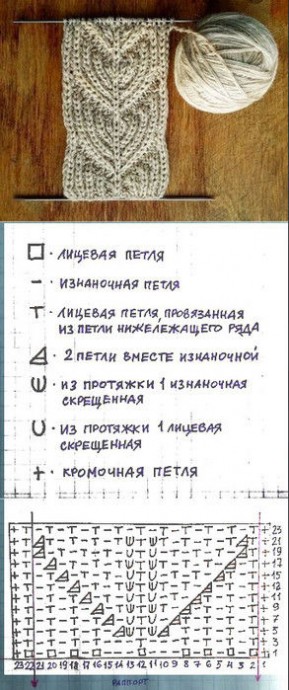 - ЛИЦЕВАЯ ПЕТЛЯ
- ИЗНАНОЧНАЯ ПЕТЛЯ
- ЛИЦЕВАЯ ПЕТЛЯ, ПРОВЯЗАННАЯ
ИЗ ПЕТЛИ НИЖЕЛЕЖАЩЕГО РЯДА
- 2 ПЕТЛИ ВМЕСТЕ ИЗНАНОЧНОЙ
- ИЗ ПРОТЯЖКИ 1 ИЗНАНОЧНАЯ
СКРЕЩЕННАЯ
- ИЗ ПРОТЯЖКИ 1 ЛИЦЕВАЯ
СКРЕЩЕННАЯ
+ - КРОМОЧНАЯ ПЕТЛЯ
23
21
19
17
15
13
11
9
7
5
3
1
23 22 21 20 19 18 17 16 15 14 13 12 11 10 9 8 7 6 5 4 3 2 1
РАППОРТ